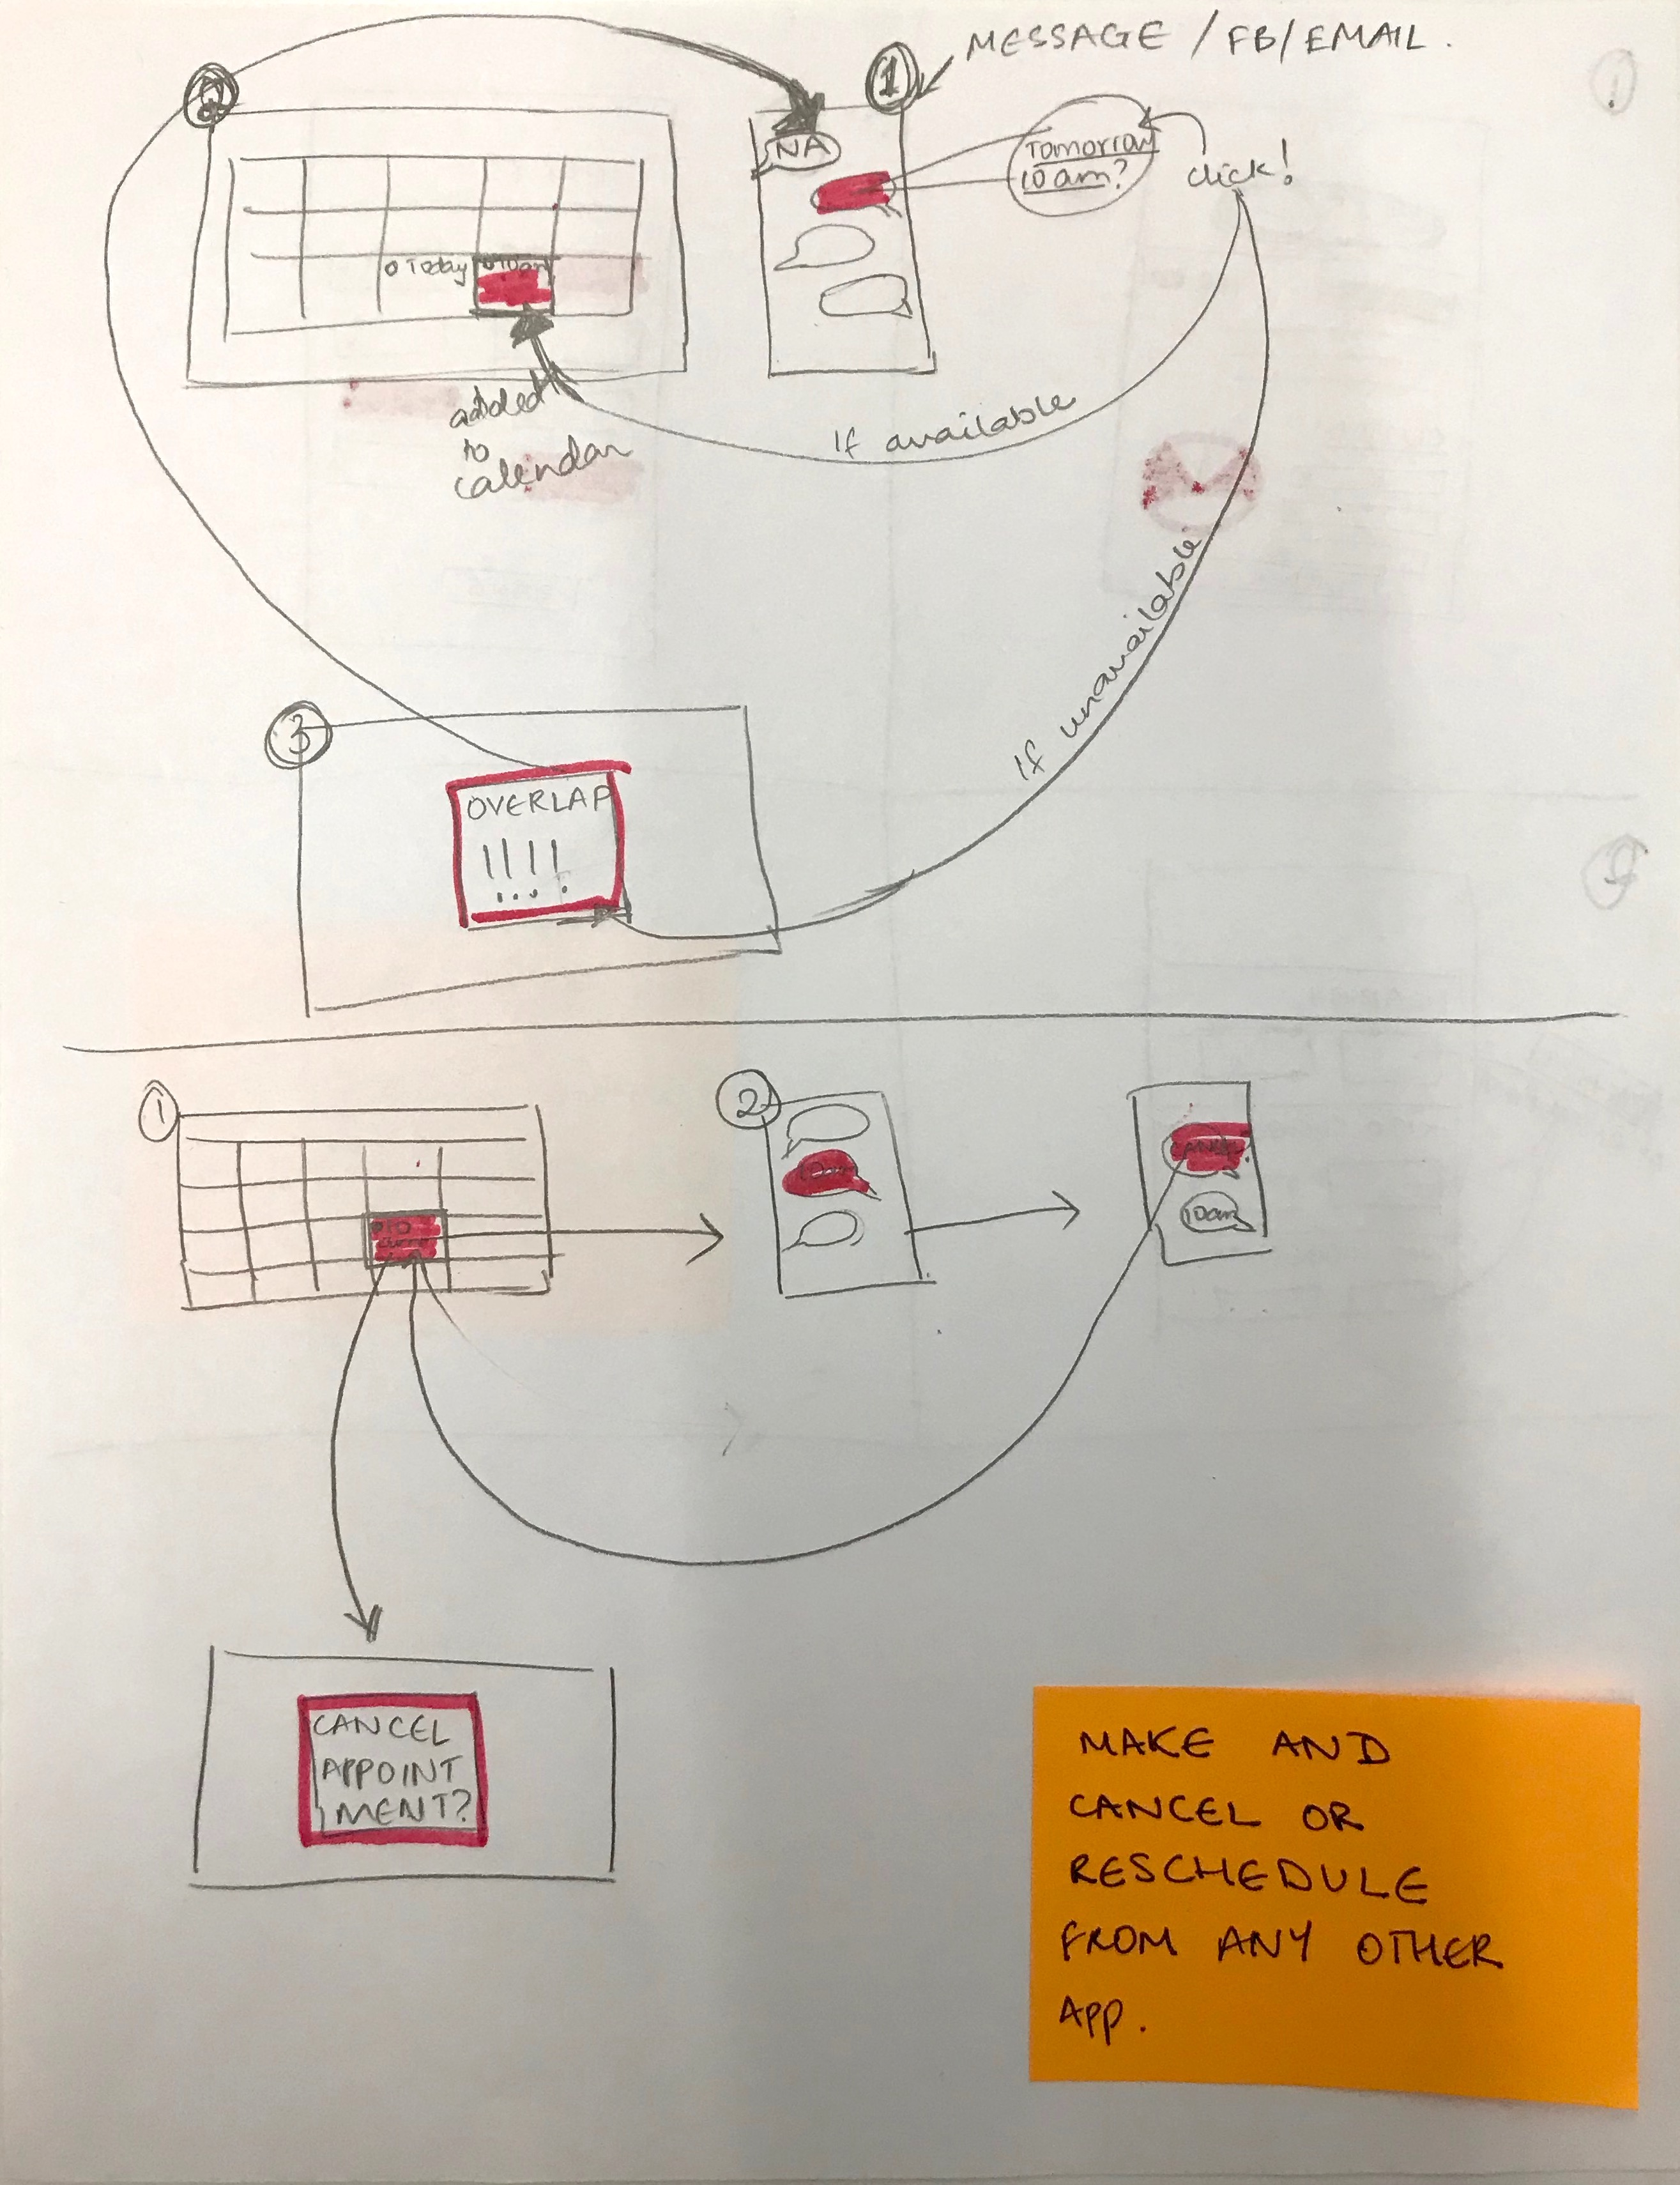 MESSAGE / FB/EMAIL.
1
NA
Tomorrow
10 am?
click!
Today
10am
added
to
calendar
If available
If unavailable
3
OVERLAP
!!!!
1
2
10am
10
CANCEL
APPOINT
MENT?
MAKE AND
CANCEL OR
RESCHEDULE
FROM ANY OTHER
APP.